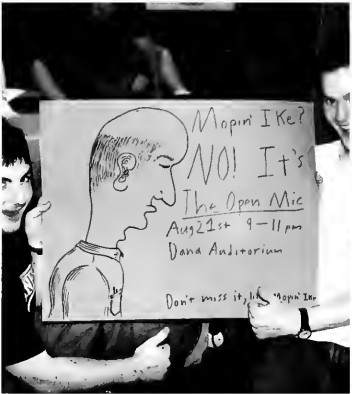 Mopin' Ike?
NO! It's
The Open Mic
Aug 21st 9-11 pm
Dana Auditorium
Don't miss it, Mopin' Ike